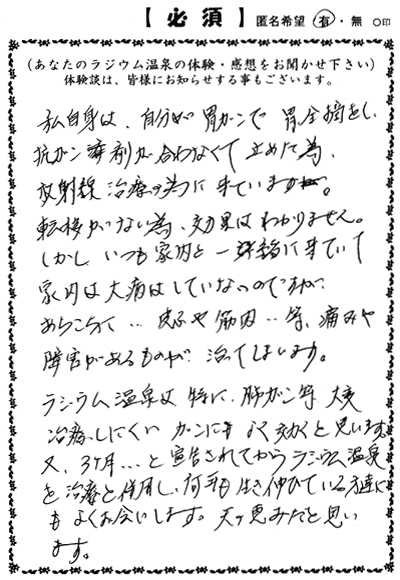 【必須】 匿名希望 有・無 ○印
(あなたのラジウム温泉の体験・感想をお聞かせ下さい)
体験談は、皆様にお知らせする事もございます。
私自身は、自分が胃ガンで胃全摘をし、
抗ガン剤が合わなくて止めた為、
放射線治療の為に来ています。
転移がない為、効果はわかりません。
しかし、いつも家内と一緒に来ていて
家内は大病はしていないのですが、
あちこち‥ や筋肉‥等、痛みや
障害があるものが、治ってしまいます。
ラジウム温泉は特に、肺ガン等 大変
治療しにくいガンに よく効くと思います。
又、3ヶ月…と宣告されてからラジウム温泉
を治療と併用し、何年も生き伸びている方達に
もよくお会いします。天の恵みだと思い
ます。